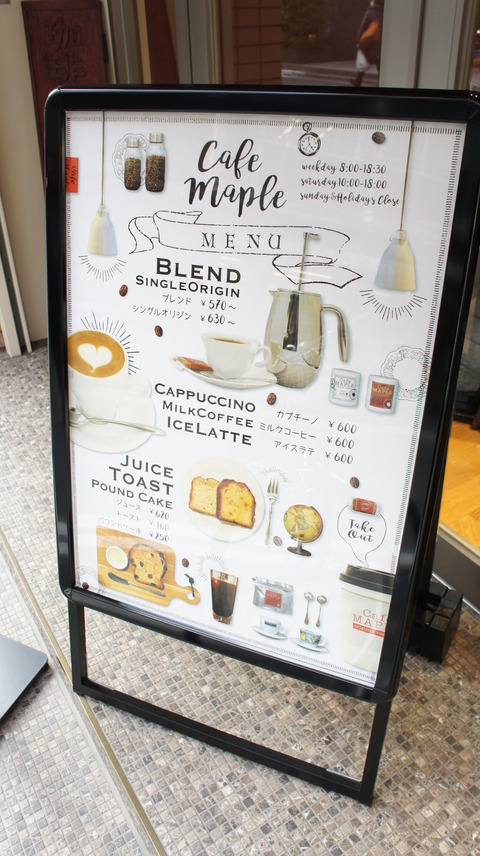 珈琲
Cafe
Maple
weekday 8:00-18:30
saturday 10:00-18:00
sunday&Holidays Close
MENU
BLEND
SINGLEORIGIN
ブレンド ¥570～
シングルオリジン ¥630～
CAPPUCCINO
MILKCOFFEE
ICELATTE
カプチーノ ¥600
ミルクコーヒー ¥600
アイスラテ ¥600
JUICE
TOAST
POUND CAKE
ジュース ¥620
トースト ¥160
パウンドケーキ ¥250
Take
Out
Cafe
MAPLE